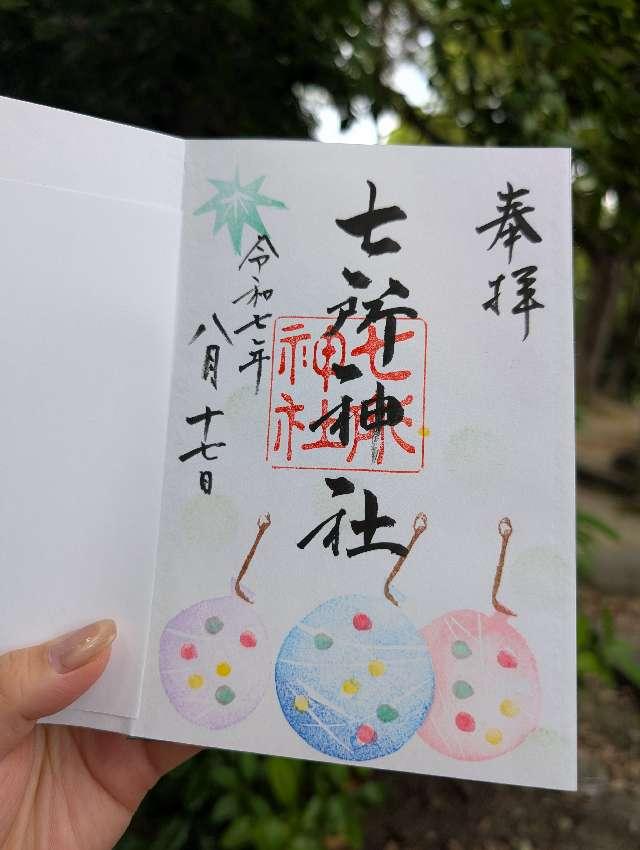 奉拝
七所神社
七所神社
令和七年
八月十七日